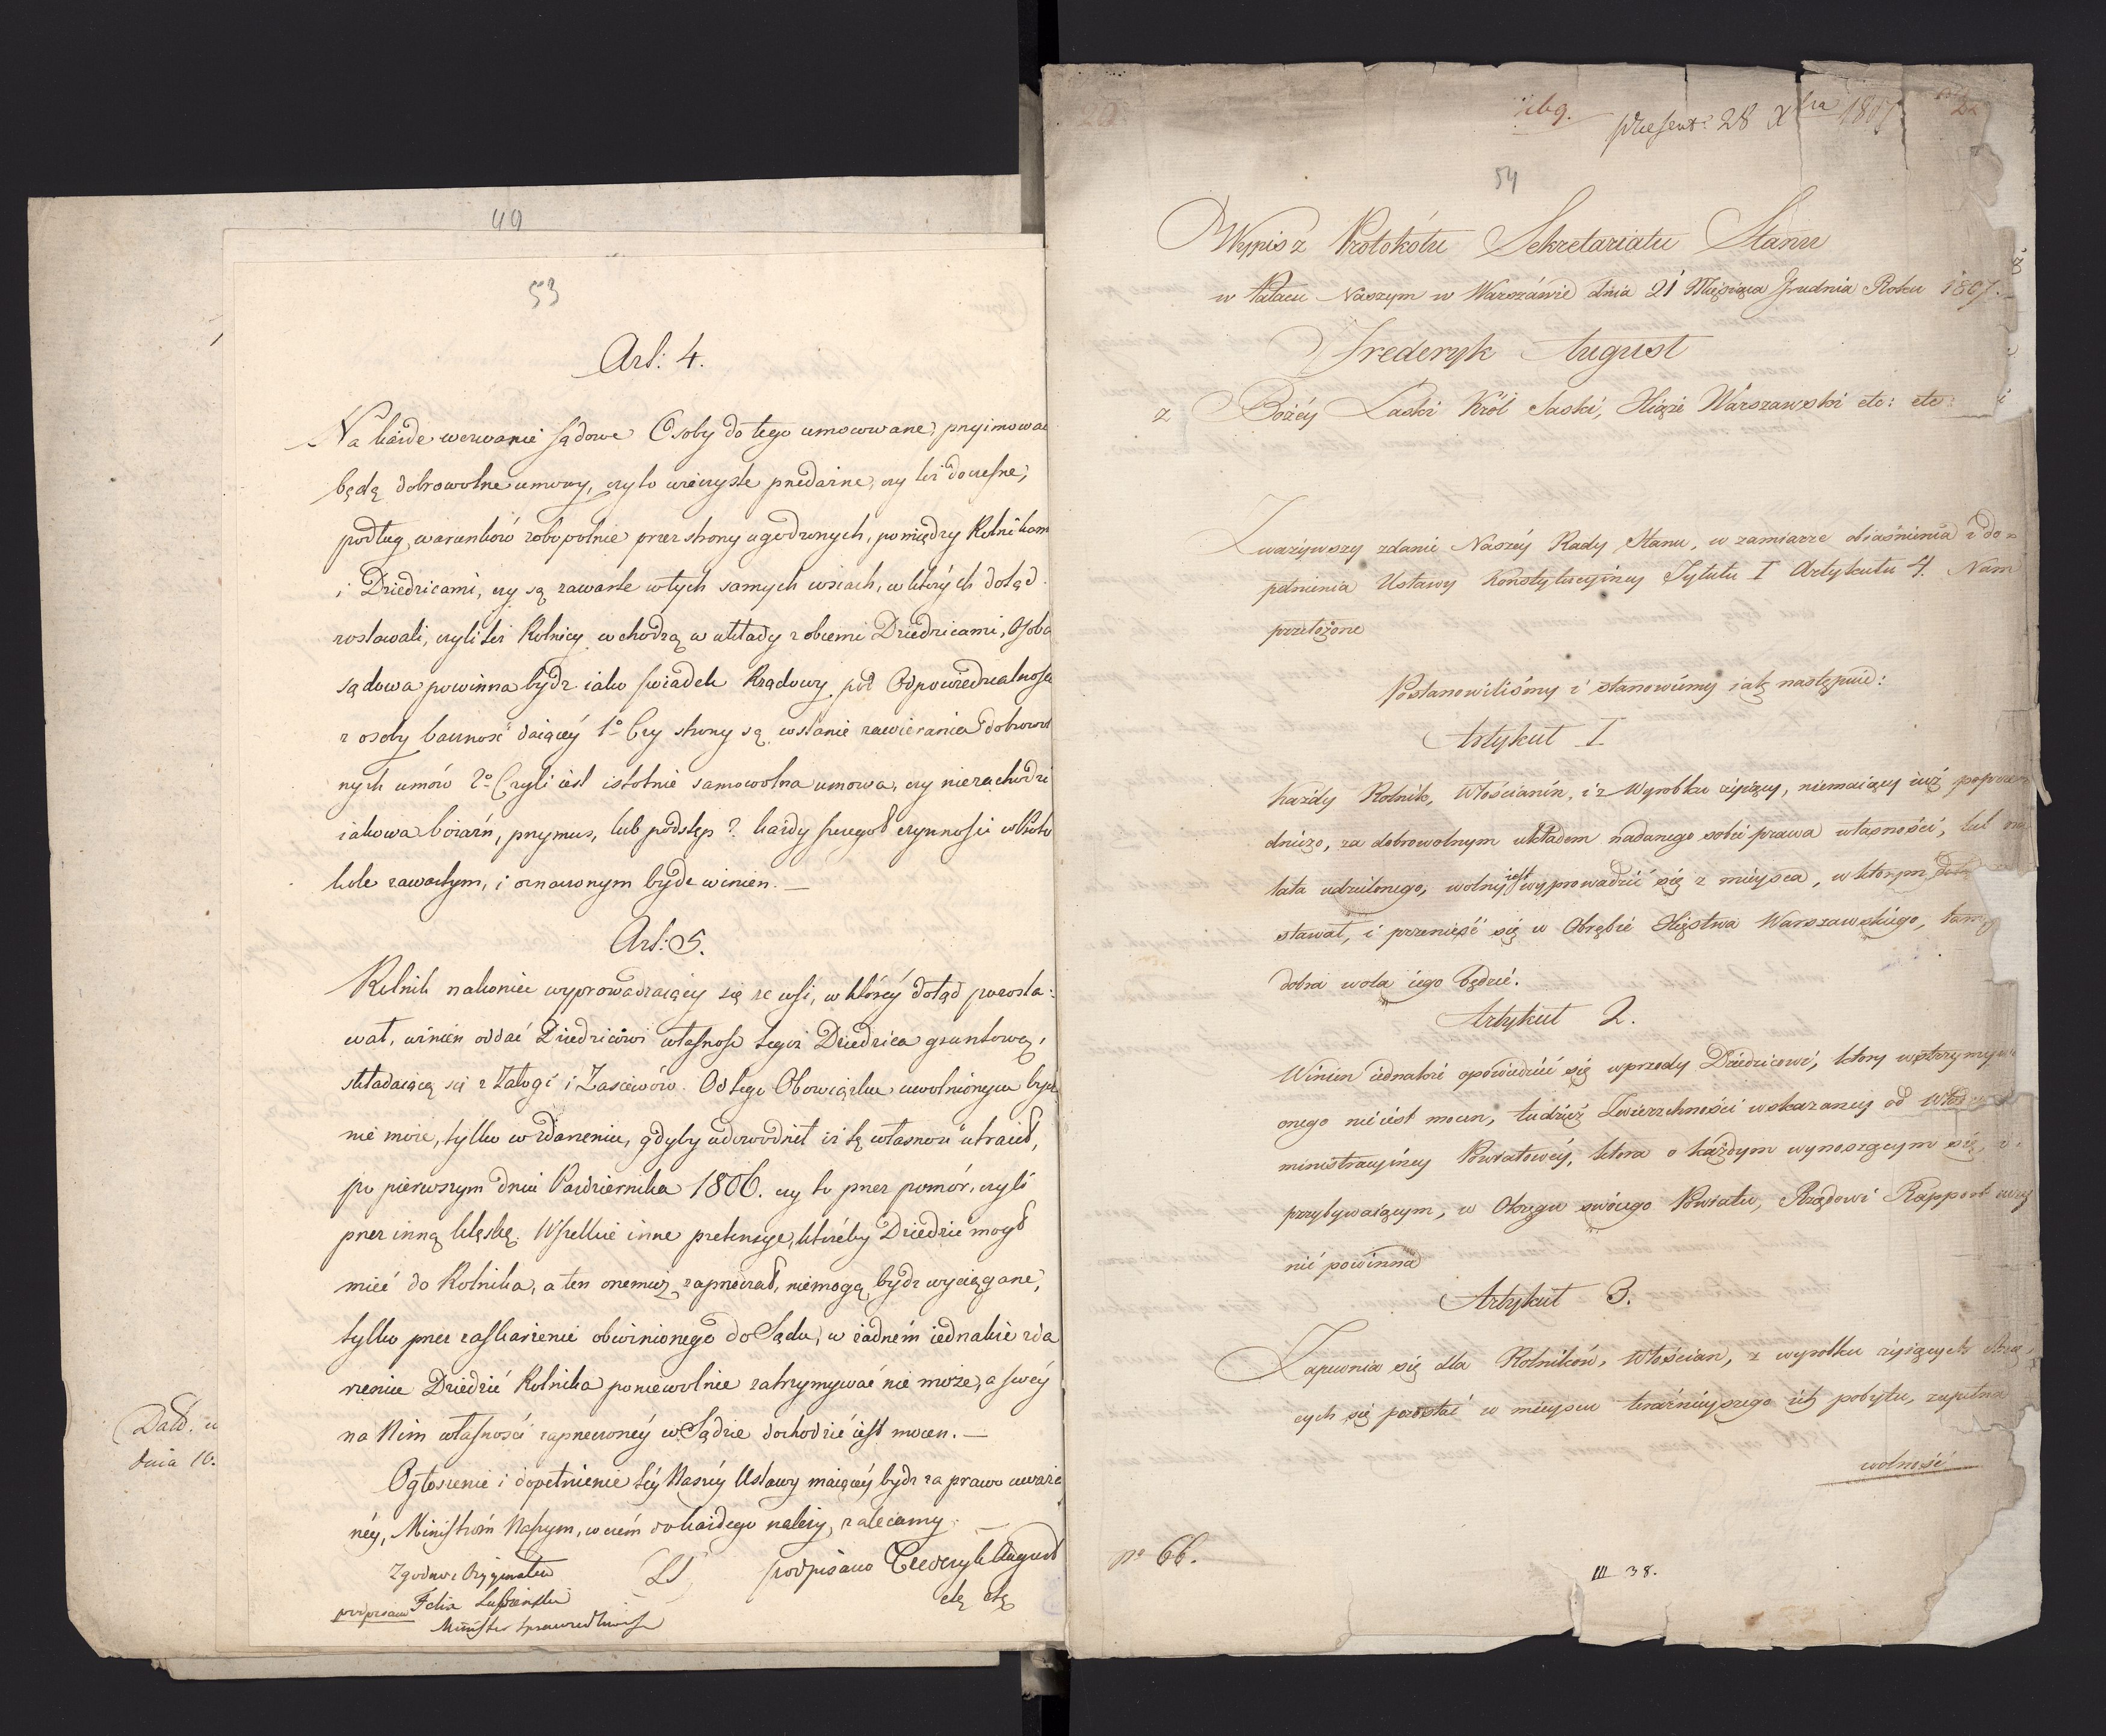 49
53
Art: 4.
Na każde wezwanie sądowe Osoby do tego umocowane, przyimować
będą dobrowolne umowy, czy to wieczyste przedażne, czy też doczesne,
podług warunków zobopolnie przez strony ugodzonych, pomiędzy Rolnikam
i Dziedzicami, czy są zawarte w tych samych wsiach, w których dotąd
zostawali, czyli też Rolnicy wchodzą w układy z obcemi Dziedzicami, Osoba
sądowa powinna bydz iako swiadek Rządowy pod Odpowiedzialnosc
z osoby baczność daiącey 1o Czy strony są wstanie zawierania dobrowol
nych umów 2o Czyli iest istotnie samowolna umowa, czy niezachodzi
iakowa boiaźń, przymus, lub podstęp? każdy szczegoł czynnosci w Proto
kole zawartym, i oznaczonym bydz winien. —
Art: 5.
Rolnik nakoniec wyprowadzaiący się ze wsi, w którey dotąd pozosta:
wał, winien oddać Dziedzicowi własnosc tegoż Dziedzica gruntową,
składaiącą się z Załogi i Zasiewów. Od tego Obowiązku uwolnionym bydz
nie może, tylko w zdarzeniu, gdyby udowodnił iż tę własnosć utracił,
po pierwszym dniu Pazdziernika 1806. czy to przez pomór, czyli
przez inną klęskę. Wszelkie inne pretensye, któreby Dziedzic mogł
mieć do Rolnika, a ten onemuż zaprzeczał, niemogą bydz wyciągane,
tylko przez zaskarżenie obwinionego do Sądu, w żadném iednakże zda
rzeniu Dziedzić Rolnika poniewolnie zatrzymywać nie może, a swéy
na Nim własności zaprzeczonéy w Sądzie dochodzić iest mocen. —
Ogłoszenie i dopełnienie téy Naszéy Ustawy maiącéy bydz za prawo uważa
néy, Ministróm Naszym, w czém do każdego należy, zalecamy.
Zgodno z Oryginałem
LS
podpisano Fryderyk August
podpisano Felix Łubieński
etc etc
Minister Sprawiedliwości
Datt. w
dnia 10.
praesent: 28 Xbra 1807
54
Wypis z Protokółu Sekretariatu Stanu
w Pałacu Naszym w Warszáwie dnia 21 Miesiąca Grudnia Roku 1807.
Frederyk August
z Bożéy Łaski Król Saski, Xiąże Warszawski etc: etc:
Zważywszy zdanie Naszéy Rady Stanu, w zamiarze obiaśnienia i do=
pełnienia Ustawy Konstytucyiney Tytułu I Artykułu 4. Nam
przełożone
Postanowiliśmy i stanowiemy iak następuie:
Artykuł I
Każdy Rolnik, Włościanin, i z Wyrobku żyiący, niemaiący iuż poprze
dniczo, za dobrowolnym układem nadanego sobie prawa własności, lub na
lata udzielonego, wolny iest wyprowadzić się z mieysca, w którym
stawał, i przenieść się w Obrębie Xięstwa Warszawskiego, tam
dobra wola iego będzie.
Artykuł 2.
Winien iednakże opowiedzieć się wprzody Dziedzicowi, ktory wstrzymy
onego nie iest mocen, tudzież Zwierzchności wskazaney od
ministracyiney Powiatowéy, która o każdym wynoszącym się, i
przybywaiącym, w Okręgu swóiego Powiatu, Rządowi Rapport uczy
nić powinna
Artykuł 3.
Zapewnia się dla Rolników, Włościan, z wyrobku żyiących
cych się pozostać w mieyscu teraźnieyszego ich pobytu, zupełna
wolność
no 66.
III 38.